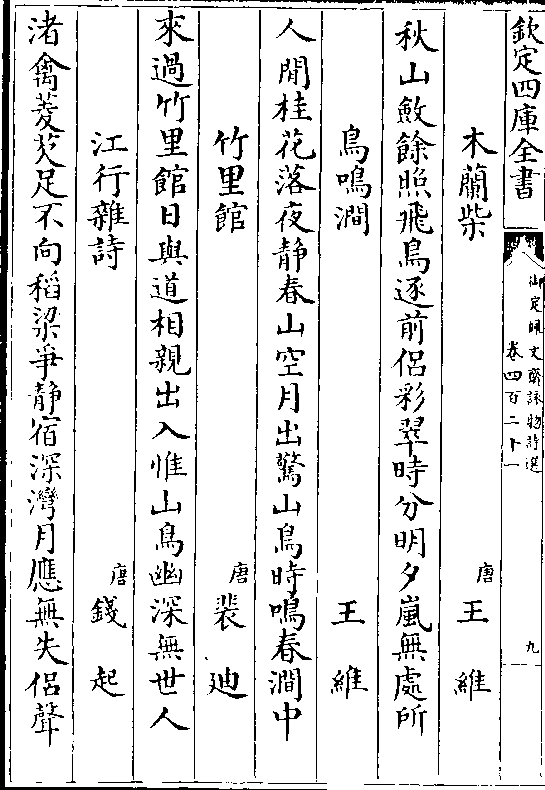 欽定四庫全書
御定佩文齋詠物詩選
卷四百二十一
九
木蘭柴 唐 王維
秋山斂餘照飛鳥逐前侶彩翠時分明夕嵐無處所
鳥鳴澗 王維
人閒桂花落夜靜春山空月出驚山鳥時鳴春澗中
竹里館 唐 裴迪
來過竹里館日與道相親出入惟山鳥幽深無世人
江行雜詩 唐 錢起
渚禽菱芡足不向稻粱爭靜宿深灣月應無失侶聲